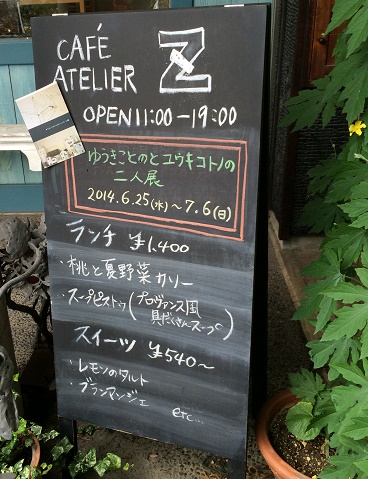 CAFÉ
ATELIER Z
OPEN 11:00-19:00
ゆうきことのとユウキコトノの
二人展
2014.6.25(水)~7.6(日)
ランチ ¥1,400
・桃と夏野菜カリー
・スープピストゥ(プロヴァンス風
具だくさんスープ)
スイーツ ¥540~
・レモンのタルト
・ブランマンジェ
etc...